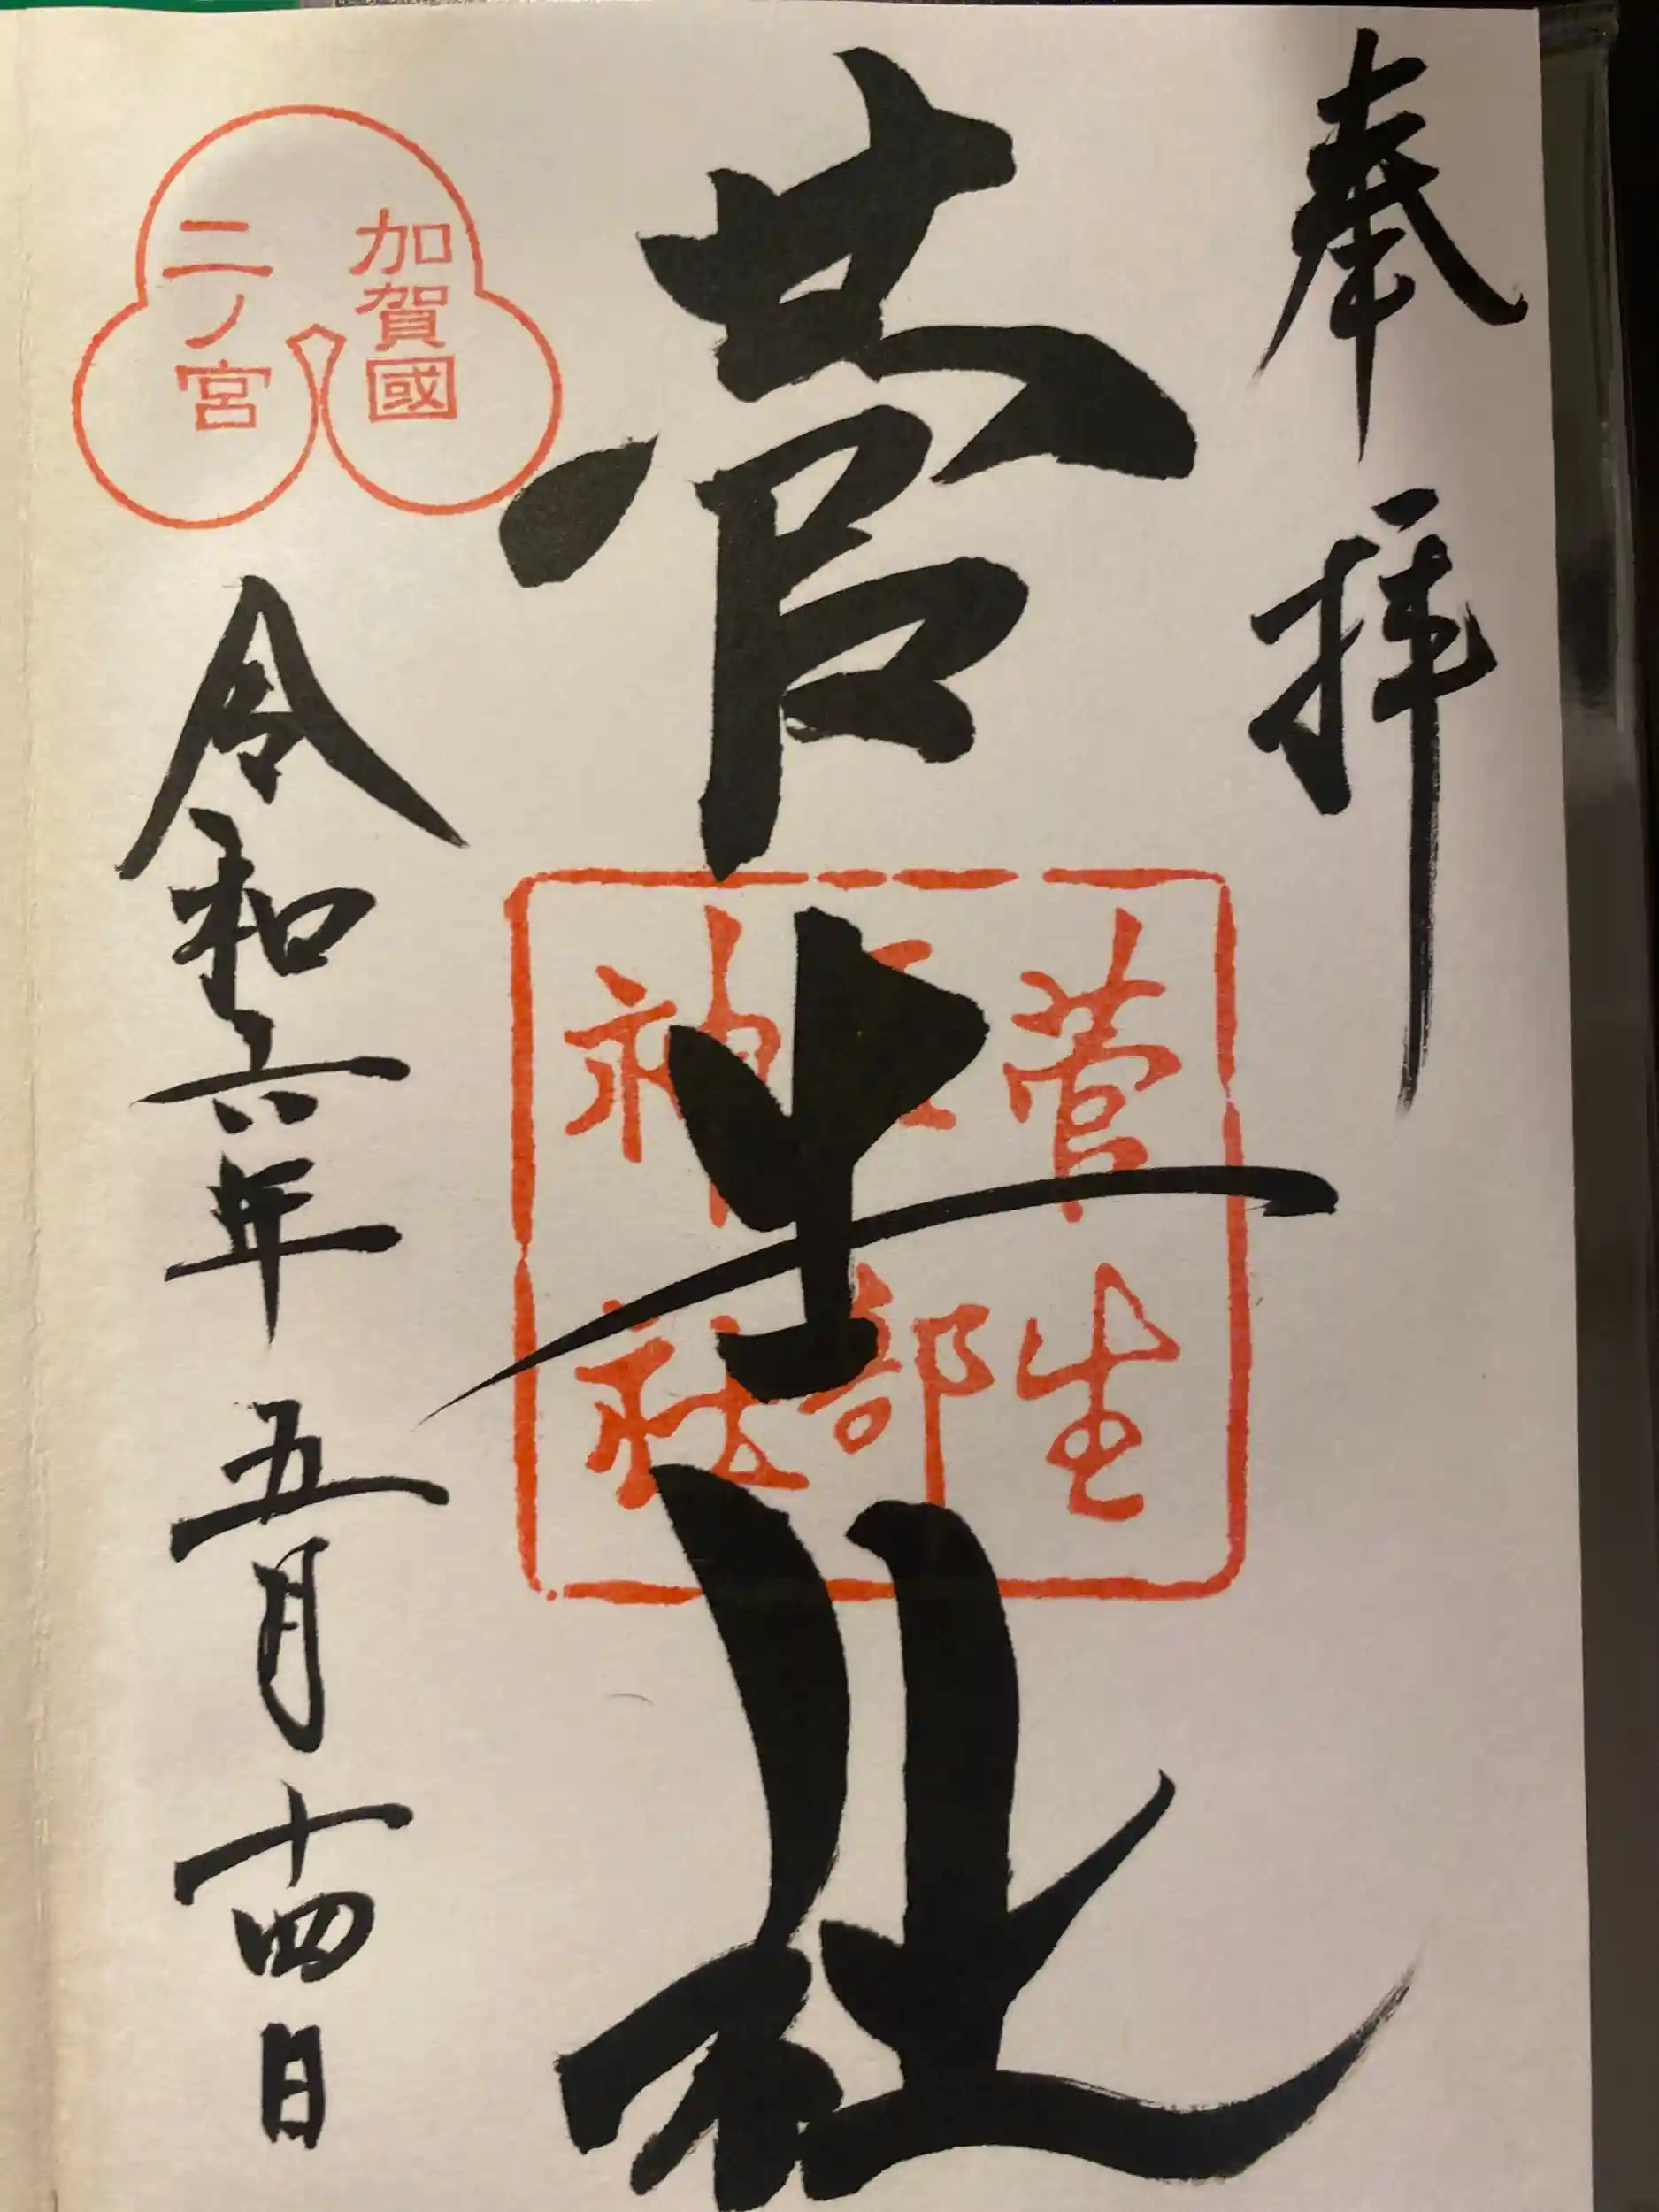 奉拝
菅生社
菅生
石部
神社
加賀國
二ノ宮
令和六年五月十四日